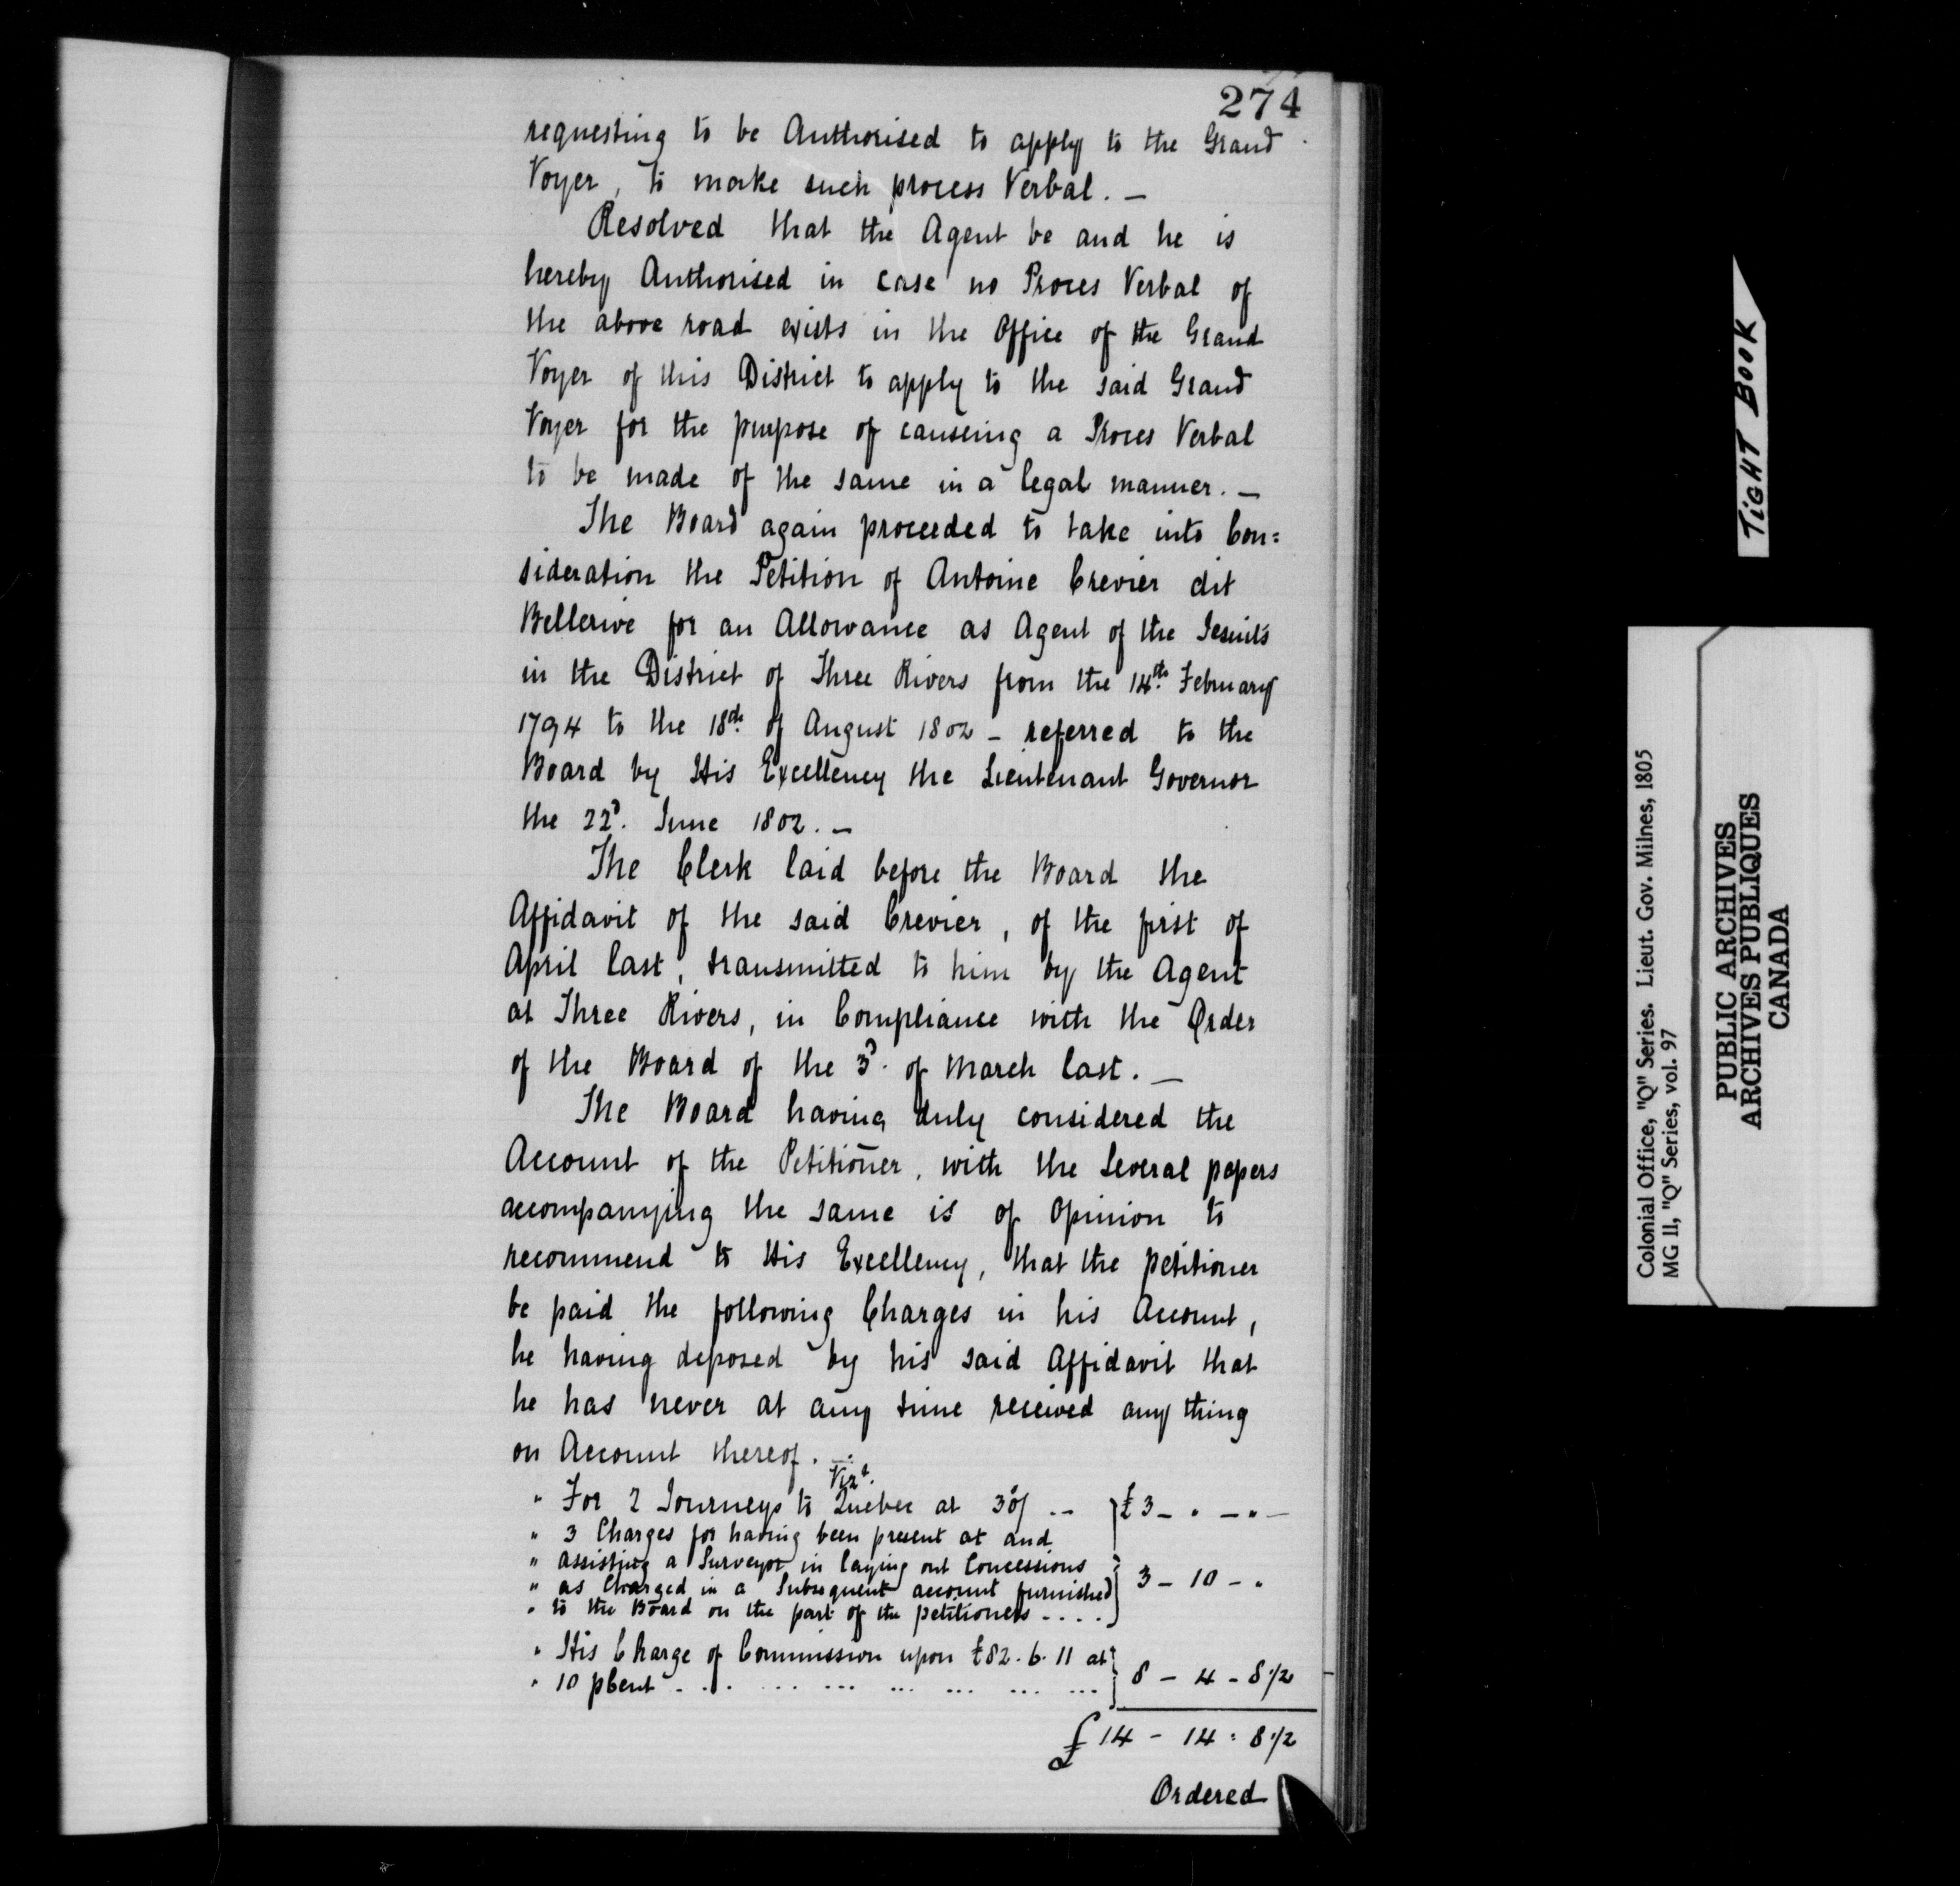 274
requesting to be Authorised to apply to the Grand
Voyer, to make such process Verbal. —
Resolved that the Agent be and he is
hereby Authorised in case no Proces Verbal of
the above road exists in the Office of the Grand
Voyer of this District to apply to the said Grand
Voyer for the purpose of causeing a Proces Verbal
to be made of the same in a legal manner. —
The Board again proceeded to take into Con=
sideration the Petition of Antoine Crevier dit
Bellerive for an Allowance as Agent of the Jesuits
in the District of Three Rivers from the 14th February
1794 to the 18th of August 1802 – referred to the
Board by His Excellency the Lieutenant Governor
the 22d. June 1802. —
The Clerk laid before the Board the
Affidavit of the said Crevier, of the first of
April last, transmitted to him by the Agent
at Three Rivers, in Compliance with the Order
of the Board of the 3d. of March last. —
The Board having duly considered the
Account of the Petitioner, with the Several papers
accompanying the same is of Opinion to
recommend to His Excellency, that the petitioner
be paid the following Charges in his Account,
he having deposed by his said Affidavit that
he has never at any time received any thing
on Account thereof. —
Vizt.
" For 2 Journeys to Quebec at 30/ -- } £3 – " – " –
" 3 Charges for having been present at and
" assisting a Surveyor in laying out Concessions
" as Charged in a Subsequent account furnished } 3 – 10 – "
" to the Board on the part of the petitioners ....
" His Charge of Commission upon £82. 6. 11 at
" 10 pCent - ... ... ... ... ... ... } 8 – 4 – 8 1/2
£ 14 – 14 : 8 1/2
Ordered
TIGHT BOOK
Colonial Office, "Q" Series. Lieut. Gov. Milnes, 1805
MG 11, "Q" Series, vol. 97
PUBLIC ARCHIVES
ARCHIVES PUBLIQUES
CANADA